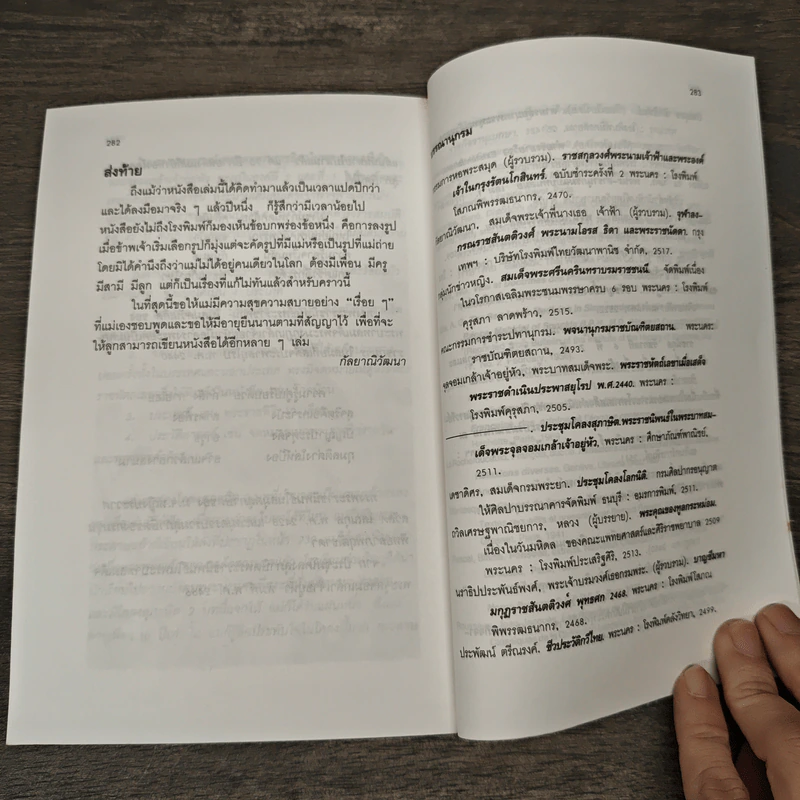 282
ส่งท้าย
ถึงแม้ว่าหนังสือเล่มนี้ได้คิดทำมาแล้วเป็นเวลาแปดปีกว่า
และได้ลงมือมาจริง ๆ แล้วปีหนึ่ง ก็รู้สึกว่ามีเวลาน้อยไป
หนังสือยังไม่ถึงโรงพิมพ์ก็มองเห็นข้อบกพร่องข้อหนึ่ง คือการลงรูป
เมื่อข้าพเจ้าเริ่มเลือกรูปก็มุ่งแต่จะคัดรูปที่มีแม่หรือเป็นรูปที่แม่ถ่าย
โดยมิได้คำนึงถึงว่าแม่ไม่ได้อยู่คนเดียวในโลก ต้องมีเพื่อน มีครู
มีสามี มีลูก แต่ก็เป็นเรื่องที่แก้ไม่ทันแล้วสำหรับคราวนี้
ในที่สุดนี้ขอให้แม่มีความสุขความสบายอย่าง “เรื่อย ๆ”
ที่แม่เองชอบพูดและขอให้มีอายุยืนนานตามที่สัญญาไว้ เพื่อที่จะ
ให้ลูกสามารถเขียนหนังสือได้อีกหลาย ๆ เล่ม
กัลยาณิวัฒนา
283
รรณานุกรม
รมการหอพระสมุด (ผู้รวบรวม). ราชสกุลวงศ์พระนามเจ้าฟ้าและพระองค์
เจ้าในกรุงรัตนโกสินทร์. ฉบับชำระครั้งที่ 2 พระนคร : โรงพิมพ์
โสภณพิพรรฒธนากร, 2470.
ัลยาณิวัฒนา, สมเด็จพระเจ้าพี่นางเธอ เจ้าฟ้า (ผู้รวบรวม). จุฬาลง-
กรณราชสันตติวงศ์ พระนามโอรส ธิดา และพระราชนัดดา. กรุง
เทพฯ : บริษัทโรงพิมพ์ไทยวัฒนาพานิช จำกัด, 2517.
นักข่าวหญิง. สมเด็จพระศรีนครินทราบรมราชชนนี. จัดพิมพ์เนื่อง
ในวโรกาสเฉลิมพระชนมพรรษาครบ 6 รอบ พระนคร : โรงพิมพ์
คุรุสภา ลาดพร้าว, 2515.
คณะกรรมการชำระปทานุกรม. พจนานุกรมราชบัณฑิตยสถาน. พระนคร:
ราชบัณฑิตยสถาน, 2493.
จุลจอมเกล้าเจ้าอยู่หัว, พระบาทสมเด็จพระ. พระราชหัตถ์เลขาเมื่อเสด็จ
พระราชดำเนินประพาสยุโรป พ.ศ.2440. พระนคร :
โรงพิมพ์คุรุสภา, 2505.
________. ประชุมโคลงสุภาษิต.พระราชนิพนธ์ในพระบาทสม-
เด็จพระจุลจอมเกล้าเจ้าอยู่หัว. พระนคร : ศึกษาภัณฑ์พาณิชย์.
2511.
เดชาดิศร, สมเด็จกรมพระยา. ประชุมโคลงโลกนิติ. กรมศิลปากรอนุญาต
ให้ศิลปาบรรณาคารจัดพิมพ์ ธนบุรี : อมรการพิมพ์, 2511.
ถวิลเศรษฐพาณิชยการ, หลวง (ผู้บรรยาย). พระคุณของทูลกระหม่อม.
เนื่องในวันมหิดล ของคณะแพทยศาสตร์และศิริราชพยาบาล 2509
พระนคร : โรงพิมพ์ประเสริฐศิริ, 2513.
นราธิปประพันธ์พงศ์, พระเจ้าบรมวงศ์เธอกรมพระ. (ผู้รวบรวม). บาญชีมหา
มกุฏราชสันตติวงศ์ พุทธศก 2468. พระนคร : โรงพิมพ์โสภณ
พิพรรฒธนากร, 2468.
ประพัฒน์ ตรีณรงค์. ชีวประวัติกวีไทย. พระนคร : โรงพิมพ์คลังวิทยา, 2499.